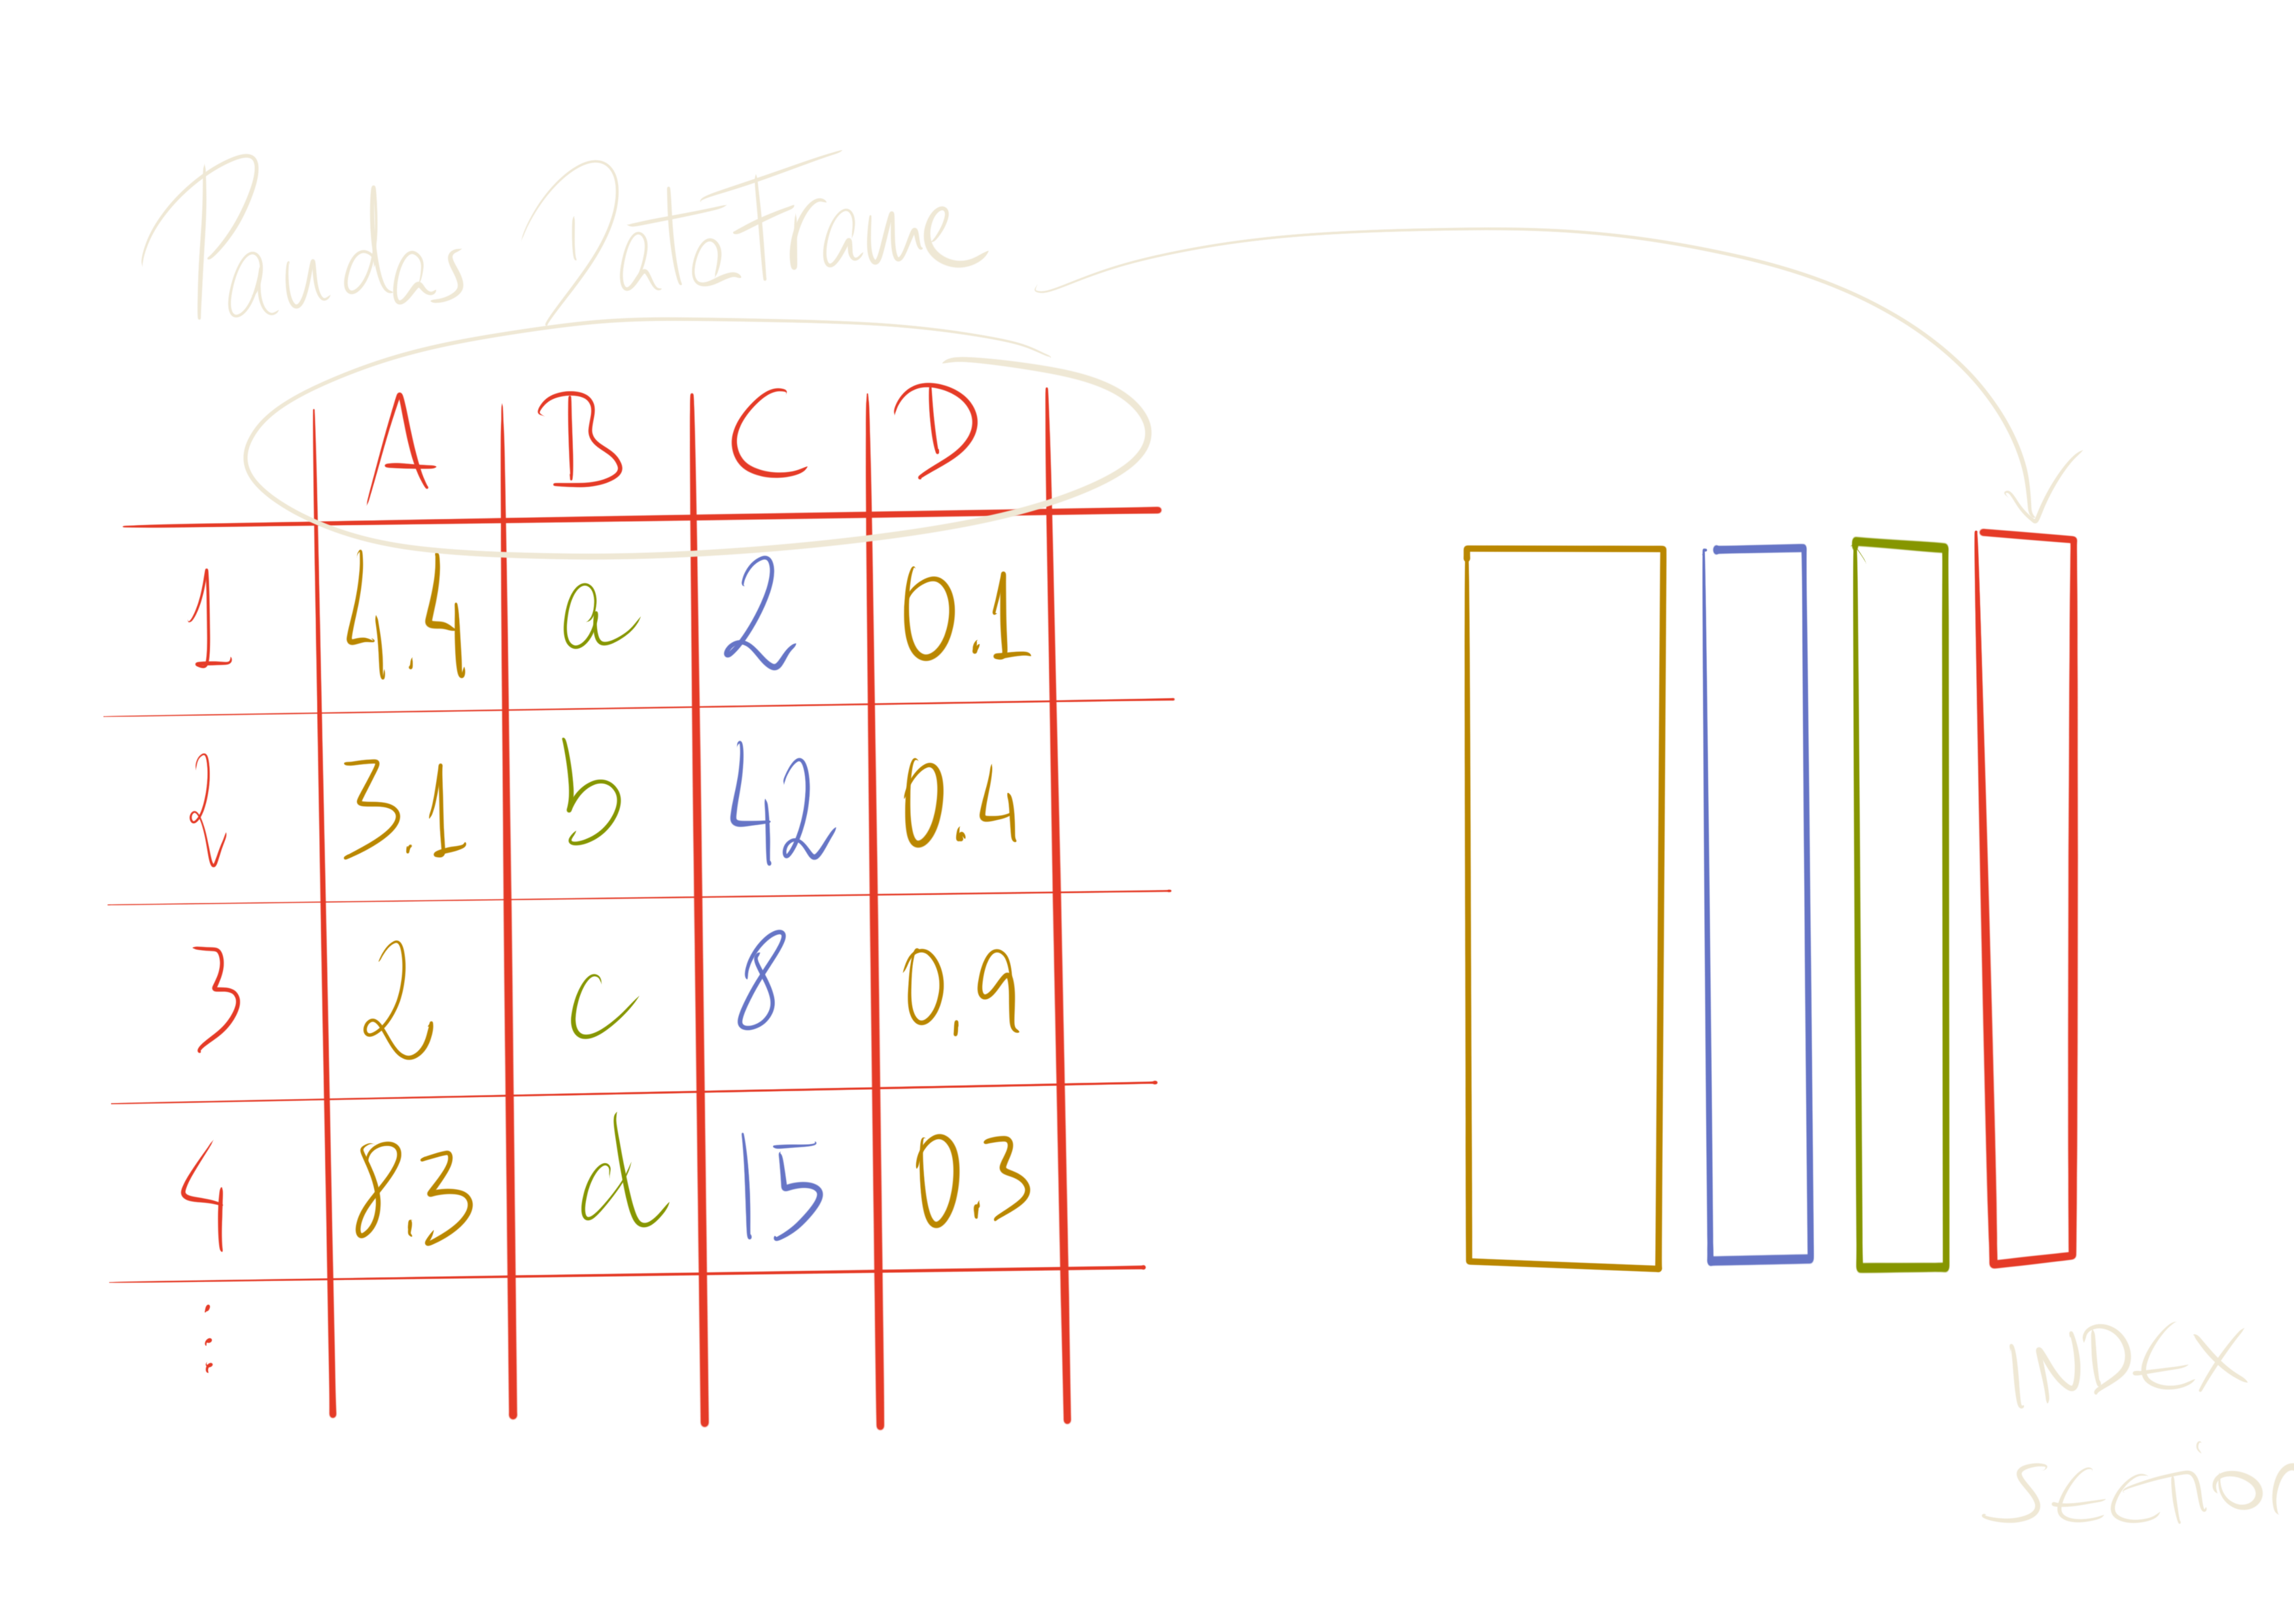 Pandas DataFrame
A B C D
1 4.4 a 2 0.1
2 3.1 b 42 0.4
3 2 c 8 0.9
4 8.3 d 15 0.3
⋮
INDEX
SECTION